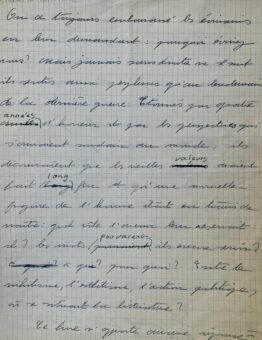 On a toujours embarrassé les écrivains
en leur demandant : pourquoi écrivez
vous? Mais jamais sans doute ne se sont
ils sentis aussi perplexes qu'au lendemain
de la dernière guerre. Étonnés par quatre
années
d'horreur et par les perspectives qui
s'ouvraient au monde, ils
découvraient que les vieilles valeurs avaient
fait long feu et qu'une nouvelle
figure de l'homme était en train de
naître: quel rôle l'avenir leur réservait
il? Les mots pouvaient ils encore servir?
à qui? pour quoi? Entre le
nihilisme, l'esthétisme, l'action politique,
où se situait la littérature?
Ce livre n'apporte aucune réponse à